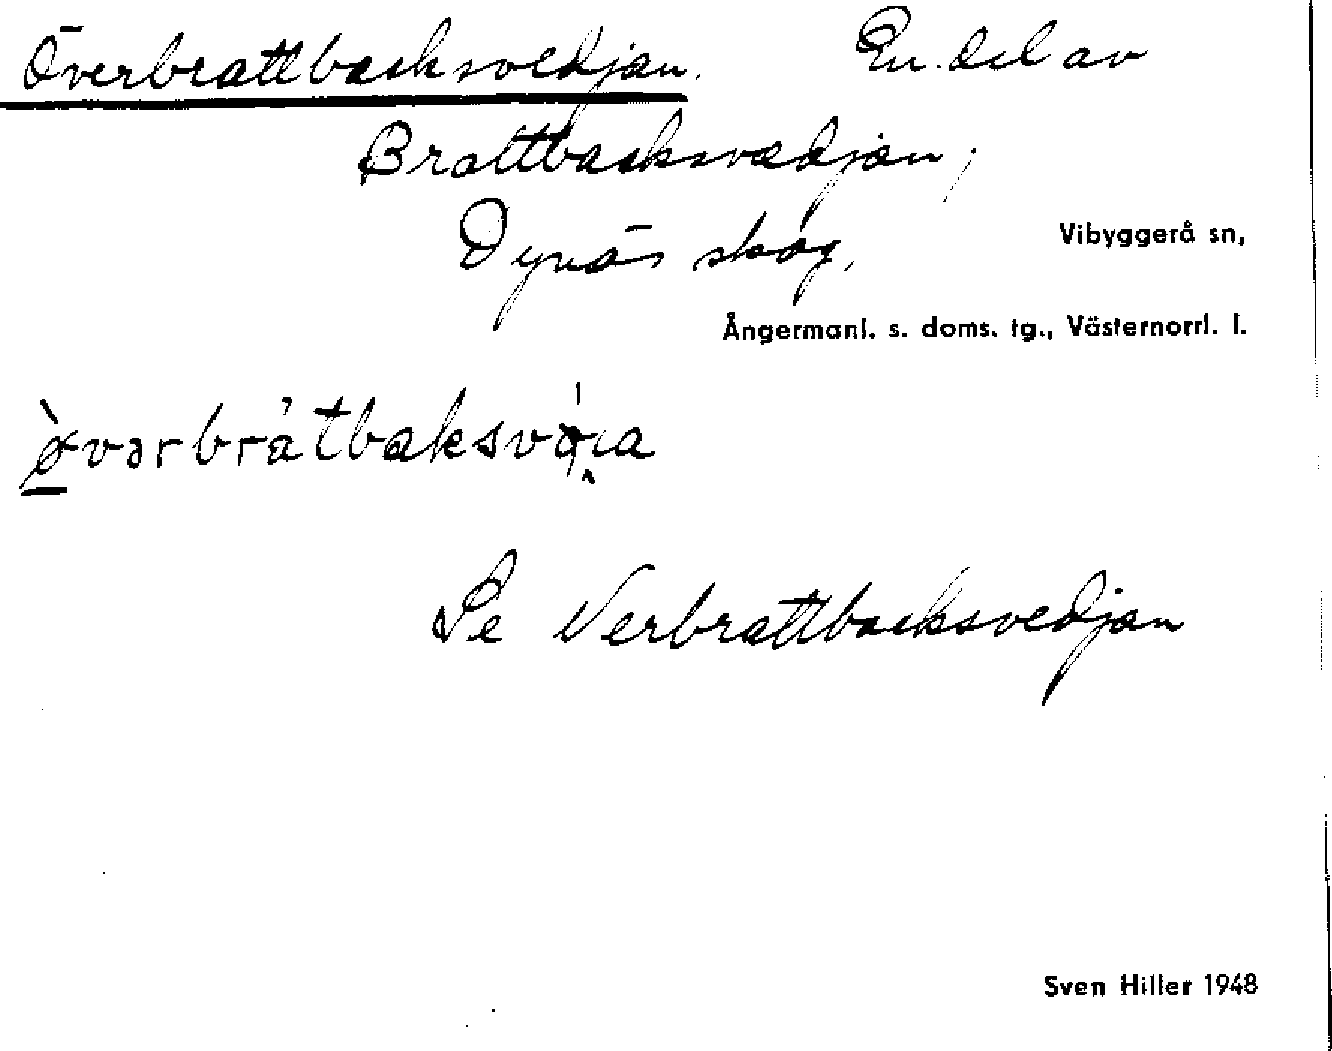 Överbrattbacksvedjan. En del av
Brattbacksvedjan,
Dynäs skog, Vibyggerå sn,
Ångermanl. s. doms. tg., Västernorrl. l.
Se Nerbrattbacksvedjan
Sven Hiller 1948